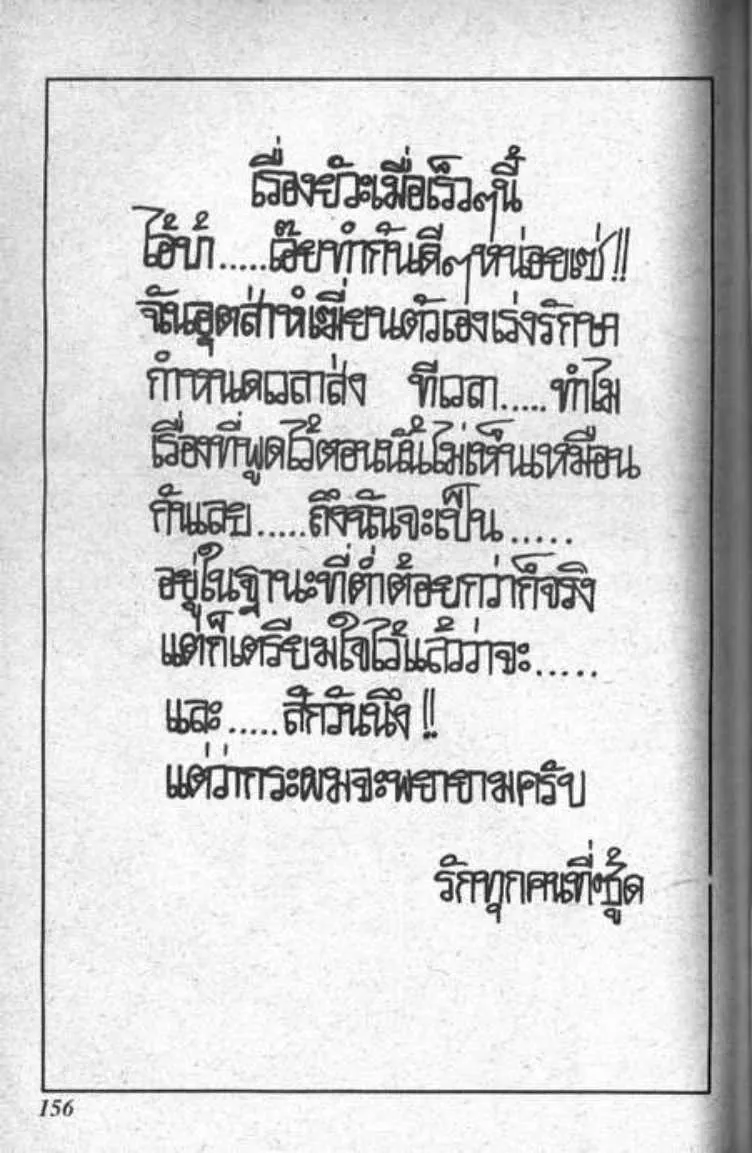 เรื่องยัวะเมื่อเร็วๆนี้
ไอ้บ้า.....เอ๊ยทำกันดีๆหน่อยเซ่!!
ฉันอุตส่าห์เฆี่ยนตัวเองเร่งรักษา
กำหนดเวลาส่ง ทีเวลา.....ทำไม
เรื่องที่พูดไว้ตอนนั้นไม่เห็นเหมือน
กันเลย.....ถึงฉันจะเป็น......
อยู่ในฐานะที่ต่ำต้อยกว่าก็จริง
แต่ก็เตรียมใจไว้แล้วว่าจะ.....
และ.....สักวันนึง!!
แต่ว่ากระผมจะพยายามครับ
รักทุกคนที่ซู้ด
156